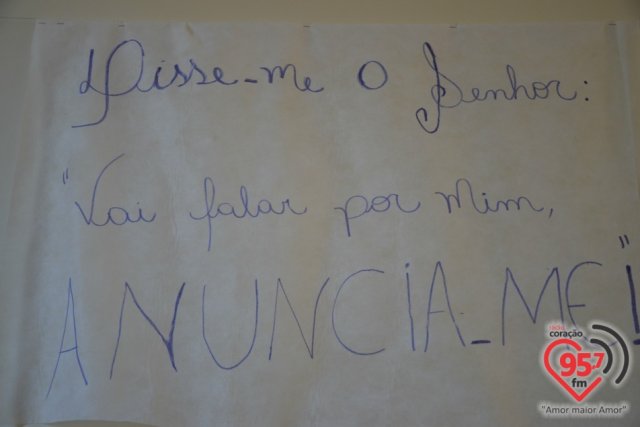 Disse-me O Senhor:
"Vai falar por mim,
ANUNCIA-ME"!
rádio
coração
95.7
fm
"Amor maior Amor"